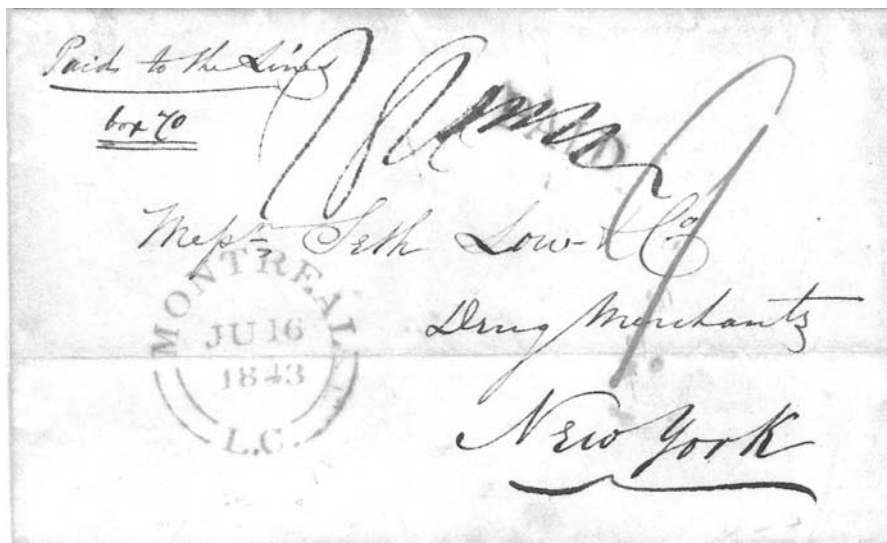 Paid to the Lines
box 70
PAID
Messrs Seth Low & Co
Drug Merchants
New York
MONTREAL
JU 16
1843
L.C.